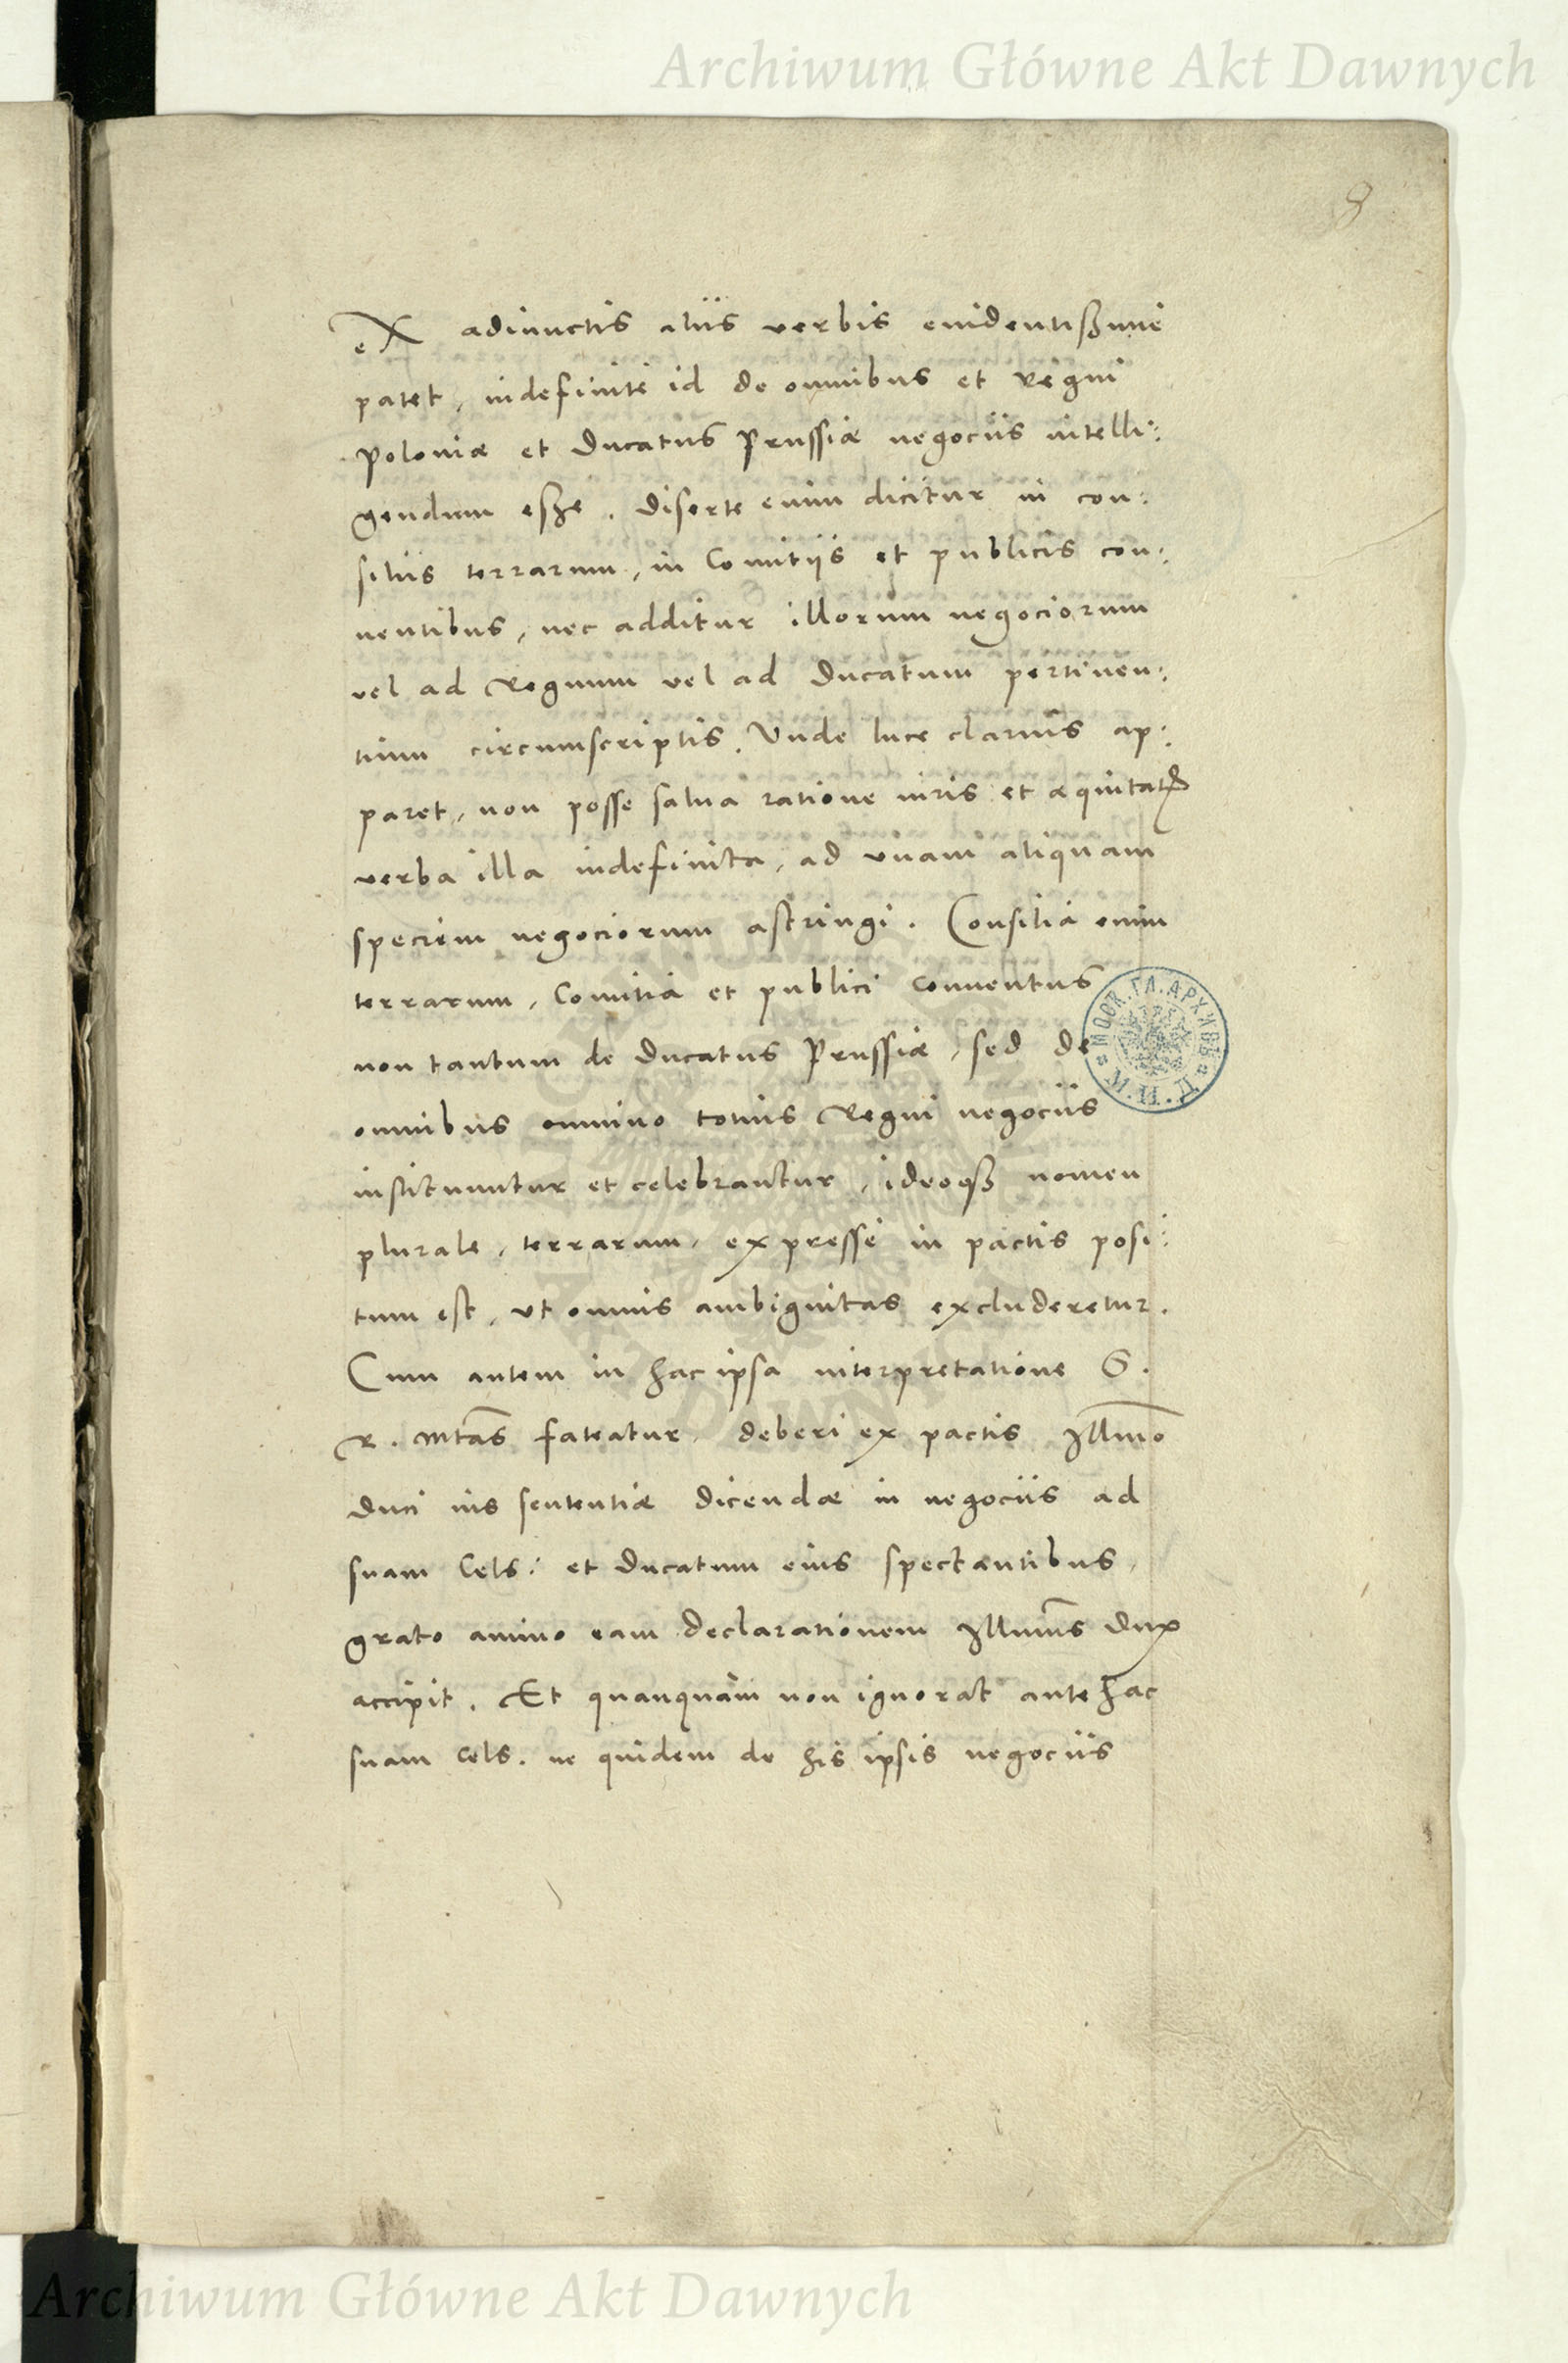 Archiwum Główne Akt Dawnych
8
eX adiunctis aliis verbis euidentißime
patet, indefinite id de omnibus et Regni
Poloniæ et Ducatus Prussiæ negociis intelli:
gendum eße. Diserte enim dicitur in con:
siliis terrarum, in Comitijs et publicis con:
uentibus, nec additur illorum negociorum
vel ad Regnum vel ad Ducatum pertinen:
tium circumscriptis. Vnde luce clarius ap:
paret, non posse salua ratione iuris et æquitatis
verba illa indefinita, ad vnam aliquam
speciem negociorum astringi. Consilia enim
terrarum, Comitia et publici Conuentus
non tantum de Ducatus Prussiæ, sed de
omnibus omnino totius Regni negociis
instituuntur et celebrantur, ideoqꝫ nomen
plurale, terrarum, expresse in pactis posi:
tum est, vt omnis ambiguitas excluderetur.
Cum autem in hac ipsa interpretatione S.
R. Mtas fateatur, deberi ex pactis Illmo
Duci ius sententiæ dicendæ in negociis ad
suam Cels: et Ducatum eius spectantibus,
grato animo eam declarationem Illmus Dux
accipit. Et quanquam non ignorat antehac
suam Cels. ne quidem de his ipsis negociis
МОСК. ГЛ. АРХИВЪ
М. И. Д.
ARCHIWUM GŁÓWNE AKT DAWNYCH
Archiwum Główne Akt Dawnych